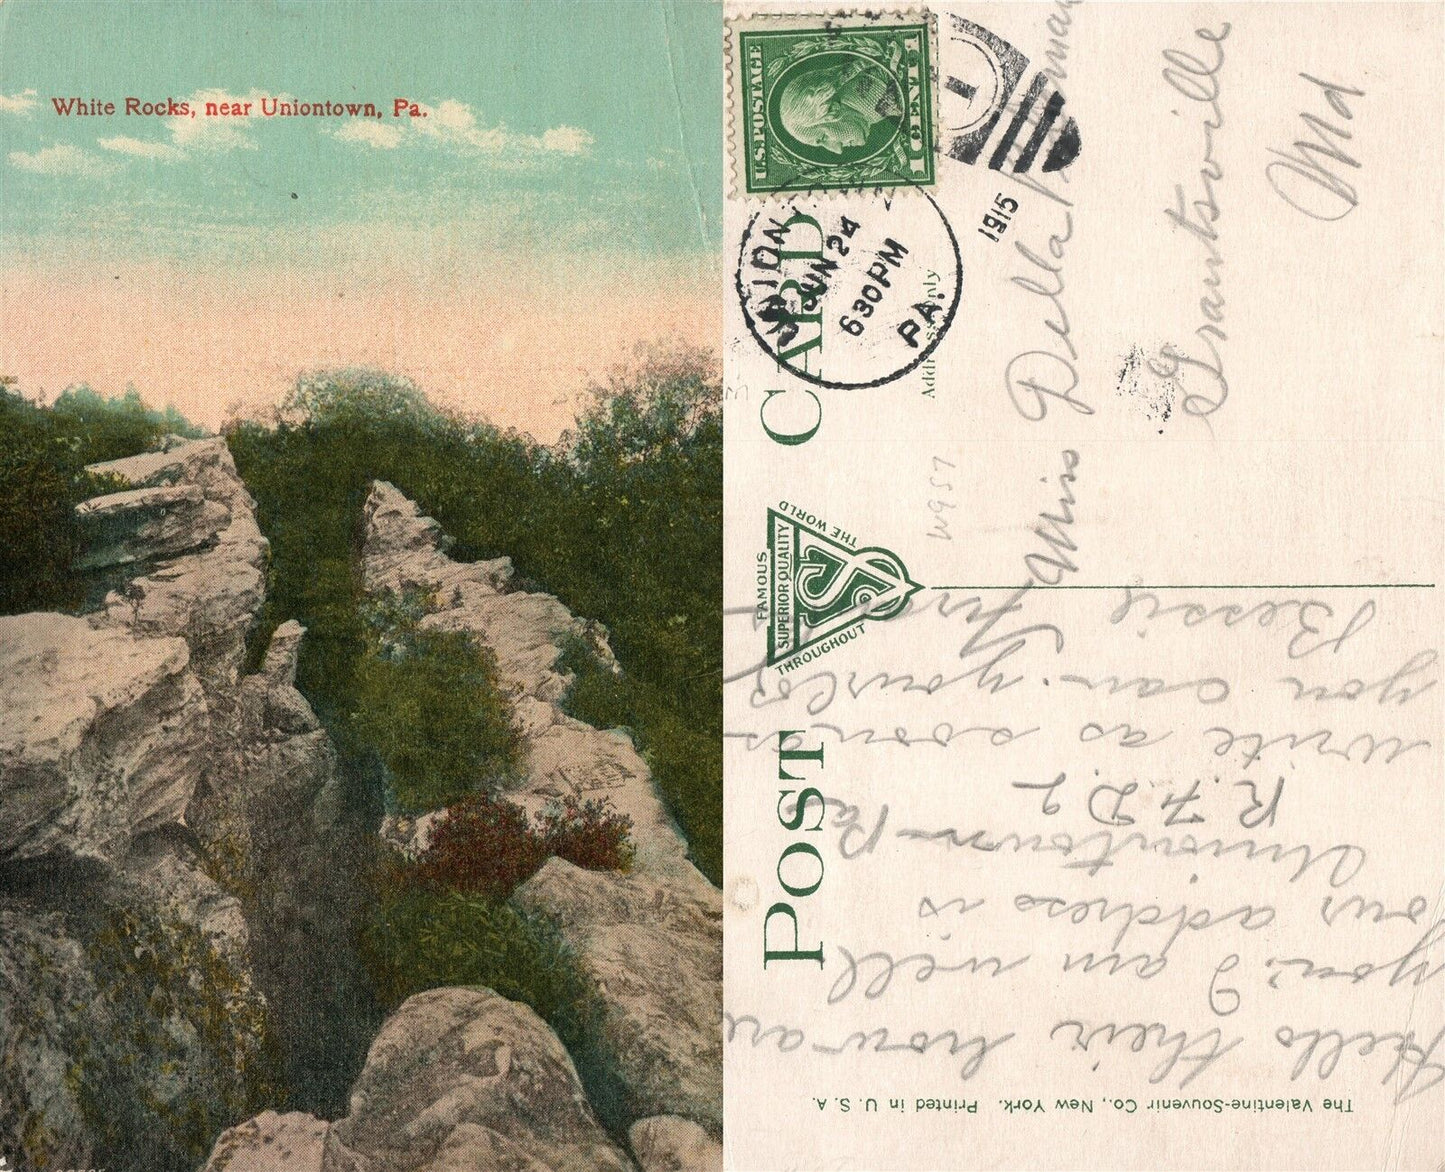 White Rocks, near Uniontown, Pa.
POST CARD
U.S. POSTAGE
1 CENT 1
UNION
JUN 24
630 PM
PA.
1
1915
FAMOUS
THROUGHOUT
THE WORLD
SUPERIOR QUALITY
W957
Miss Della
Grantsville
Md
Hello their how are
you. I am well
our address is
Uniontown Pa
R. F. D. 2
write as soon as
you can. yours
Bessie
The Valentine-Souvenir Co., New York. Printed in U. S. A.